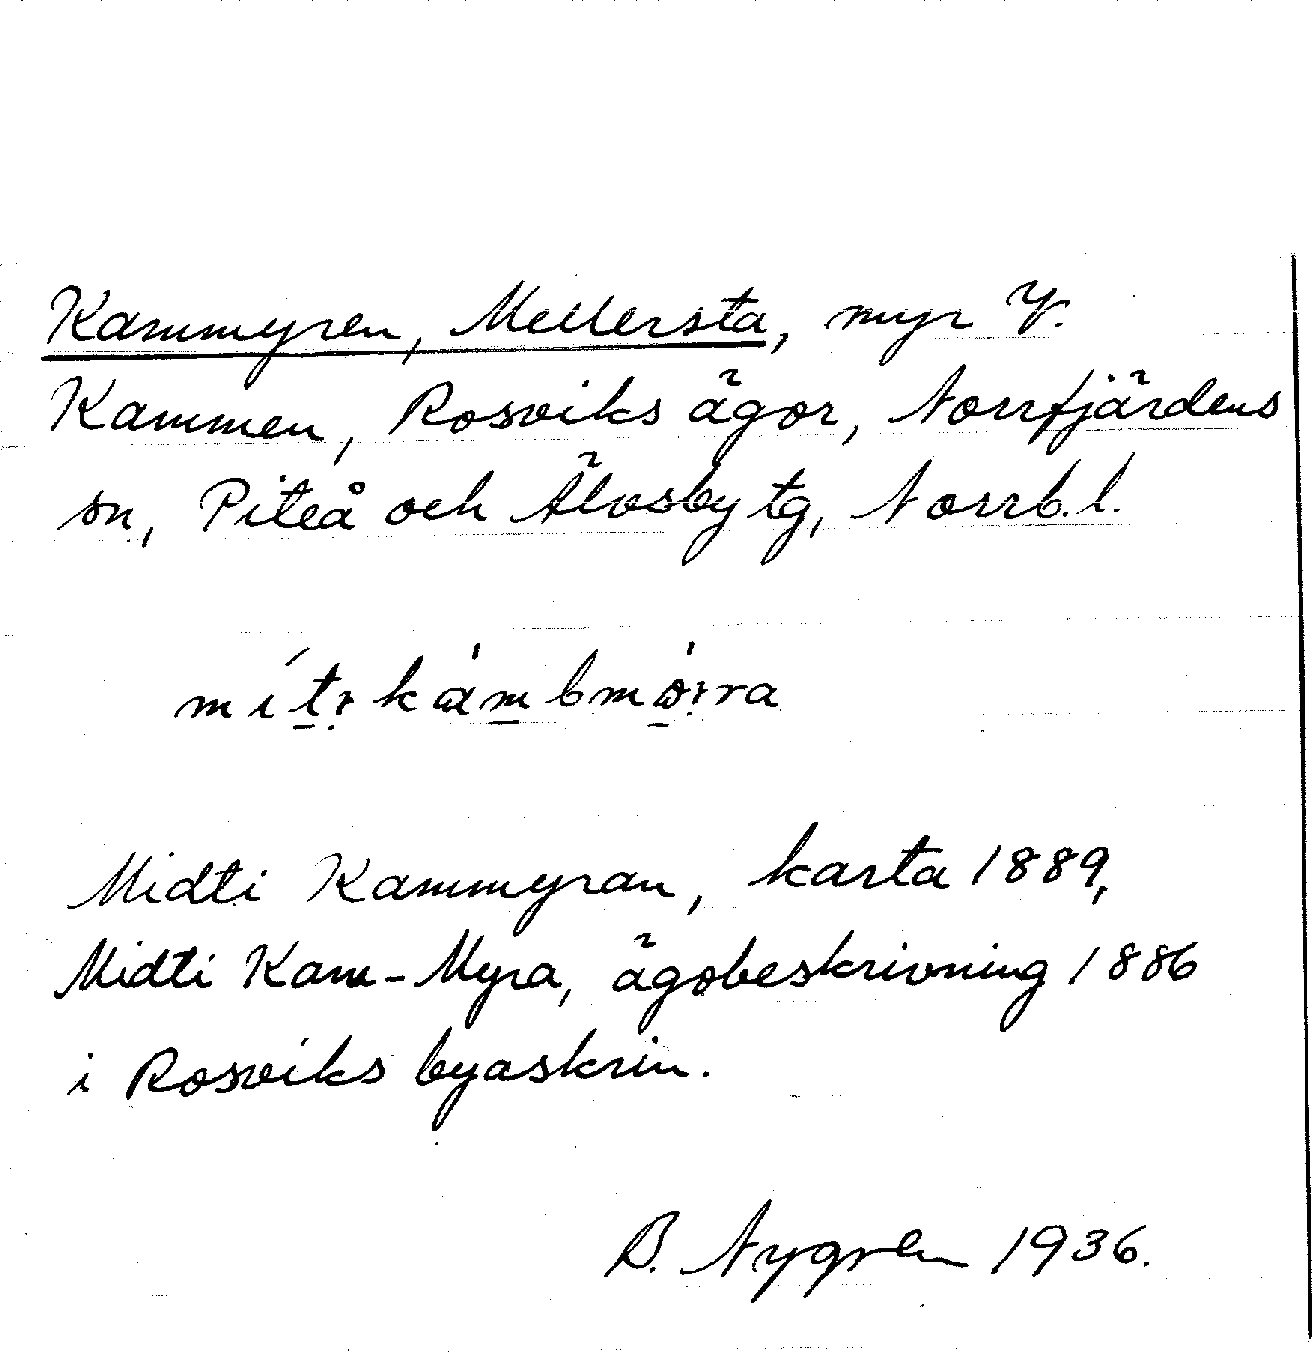 Kammyren, Mellersta, myr V.
Kammen, Rosviks ägor, Norrfjärdens
sn, Piteå och Älvsby tg, Norrb. l.
Midti Kammyran, karta 1889,
Midti Kam-Myra, ägobeskrivning 1886
i Rosviks byaskrin.
B. Nygren 1936.